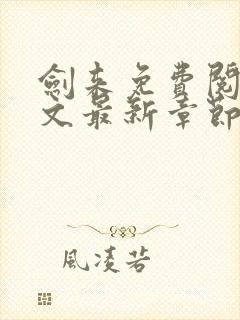 劍來免費閱
文最新章節
風凌若